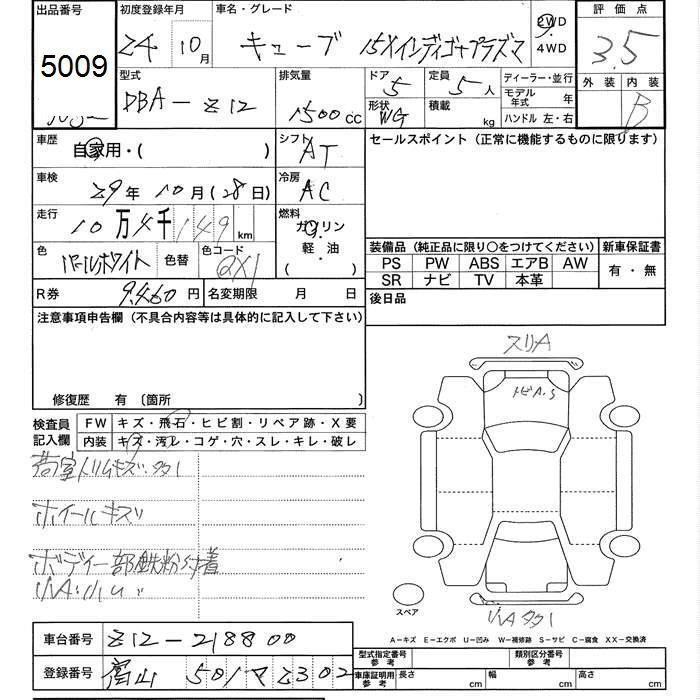 出品番号
5009
初度登録年月
24 10月
車名・グレード
キューブ 15Xインディゴ+プラズマ
2WD
4WD
評価点
3.5
外装 内装
B
型式
DBA-Z12
排気量
1500cc
ドア
5
形状
WG
定員
5人
積載 kg
ディーラー・並行
モデル年式 年
ハンドル 左・右
車歴
自家用・( )
シフト
AT
セールスポイント (正常に機能するものに限ります)
車検
29年10月(28日)
冷房
AC
走行
10万4千149km
燃料
ガソリン
軽・油
( )
色
パールホワイト
色替
色コード
QX1
装備品 (純正品に限り○をつけてください)
PS PW ABS エアB AW
SR ナビ TV 本革
新車保証書
有・無
R券 9,460円
名変期限 月 日
後日品
注意事項申告欄 (不具合内容等は具体的に記入して下さい)
修復歴 有 〔箇所 〕
検査員記入欄
FW キズ・飛石・ヒビ割・リペア跡・X要
内装 キズ・汚レ・コゲ・穴・スレ・キレ・破レ
荷室トリムキズ・タタ1
ホイールキズ
ボディー部鉄粉付着
小A・小U
スリA
トビA.S
スペア
小Aタタ1
A-キズ E-エクボ U-凹み W-補修跡 S-サビ C-腐食 XX-交換済
車台番号 Z12-218800
登録番号 富山 501 マ 2302
型式指定番号 参考
類別区分番号 参考
車庫証明用 参考
長さ cm
幅 cm
高さ cm